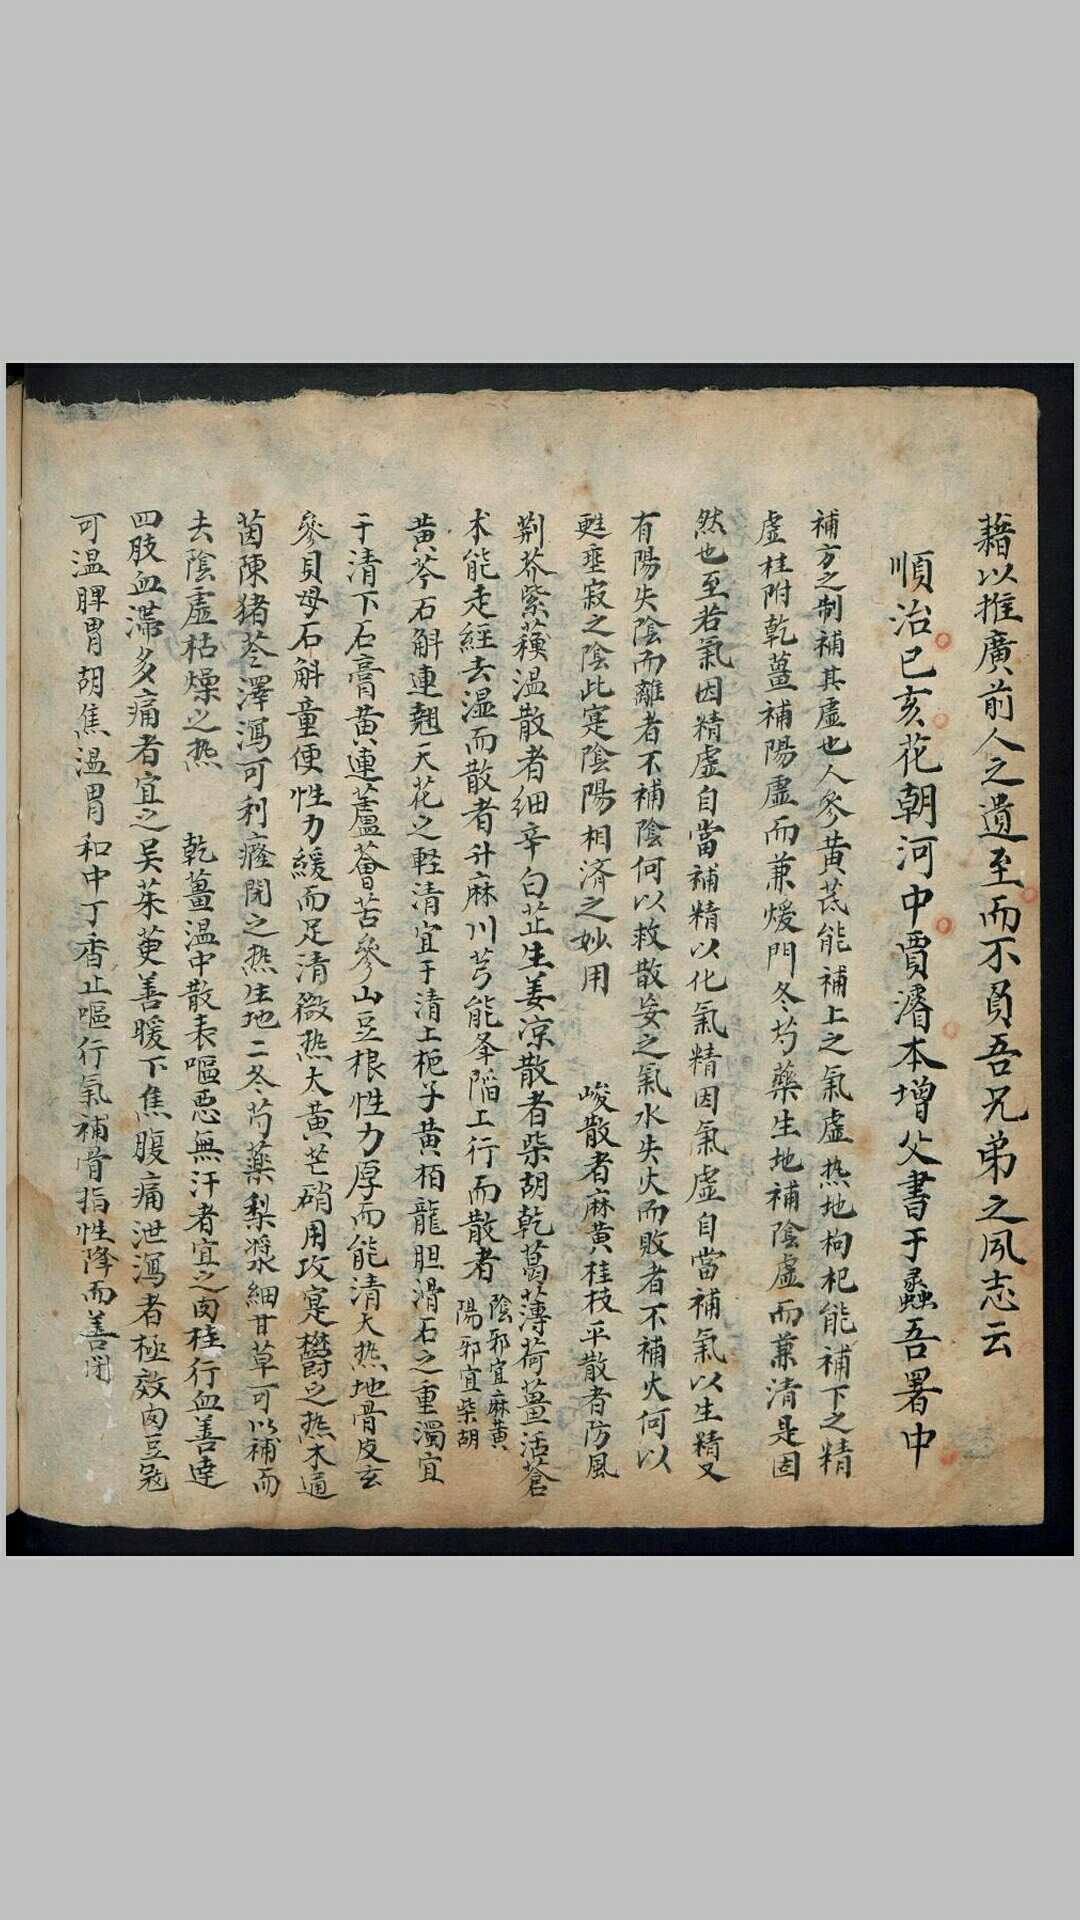 藉以推廣前人之遺至而不負吾兄弟之夙志云
順治己亥花朝河中賈濬本增父書于蠡吾署中
補方之制補其虛也人參黃芪能補上之氣虛熱地枸杞能補下之精
虛桂附乾薑補陽虛而兼煖門冬芍藥生地補陰虛而兼清是固
然也至若氣因精虛自當補精以化氣精因氣虛自當補氣以生精又
有陽失陰而離者不補陰何以救散妄之氣水失火而敗者不補火何以
甦垂寂之陰此寔陰陽相濟之妙用 峻散者麻黃桂枝平散者防風
荆芥紫蘓温散者細辛白芷生姜凉散者柴胡乾葛薄荷薑活蒼
术能走經去湿而散者升麻川芎能夅陷上行而散者 陰邪宜麻黃 陽邪宜柴胡
黃芩石斛連翹天花之輕清宜于清上栀子黃栢龍胆滑石之重濁宜
于清下石膏黃連蘆薈苦參山豆根性力厚而能清大熱地骨皮玄
參貝母石斛童便性力緩而足清微熱大黃芒硝用攻寔欝之熱木通
茵陳猪苓澤瀉可利癃閉之熱生地二冬芍藥梨漿細甘草可以補而
去陰虛枯燥之热 乾薑温中散表嘔惡無汗者宜之肉桂行血善達
四肢血滯多痛者宜之吴茱萸善暖下焦腹痛泄瀉者極效肉豆蔻
可温脾胃胡焦温胃和中丁香止嘔行氣補骨指性降而善閉